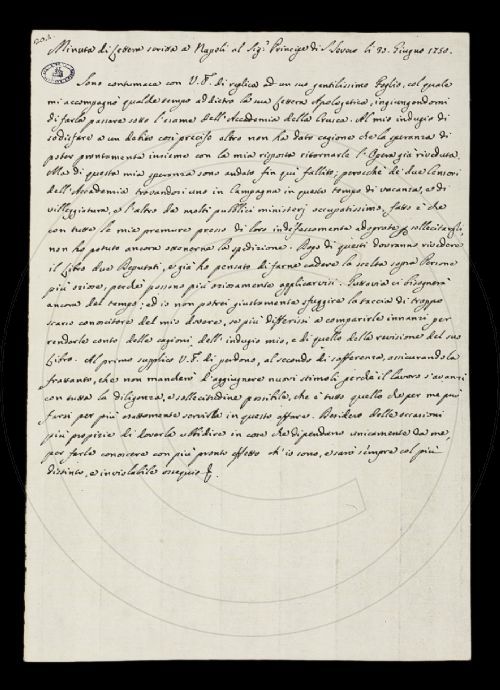 Minuta di Lettera scritta a Napoli al Sig.r Principe di S. Severo li 30. Giugno 1750.
Sono contumace con V. E. di replica ad un suo gentilissimo Foglio, col quale
mi accompagnò qualche tempo addietro la sua Lettera Apologetica, ingiungendomi
di farla passare sotto l'esame dell'Accademia della Crusca. Al mio indugio di
sodisfare a un debito così preciso altro non ha dato cagione che la speranza di
poter prontamente insieme con la mia risposta ritornarle l'Opera già riveduta.
Ma di questa mia speranza sono andato fin qui fallito, perocchè de' due Censori
dell'Accademia trovandosi uno in Campagna in questo tempo di vacanza, e di
villeggiatura, e l'altro da molti pubblici ministerj occupatissimo, fatto è che
con tutte le mie premure presso di loro indefessamente adoprate p sollecitargli,
non ho potuto ancora ottenerne la spedizione. Dopo di questi dovranno rivedere
il Libro due Deputati, e già ho pensato di farne cadere la scelta sopra Persone
più oziose, perchè possano più oziosamente applicarvisi. Tuttavia ci bisognerà
ancora del tempo; ed io non potrei giustamente sfuggire la taccia di troppo
scarso conoscitore del mio dovere, se più differissi a comparirle innanzi per
renderle conto delle cagioni, dell'indugio mio, e di quello della revisione del suo
Libro. Al primo supplico V. E. di perdono, al secondo di sofferenza, assicurandola
frattanto, che non mancherò d'aggiugnere nuovi stimoli perchè il lavoro s'avanzi
con tutta la diligenza, e sollecitudine possibile, che è tutto quello che per me può
farsi per più esattamente servirla in questo affare. Desidero delle occasioni
più propizie di doverla ubbidire in cose che dipendano unicamente da me,
per farle conoscere con più pronto effetto ch'io sono, e sarò sempre col più
distinto, e inviolabile ossequio